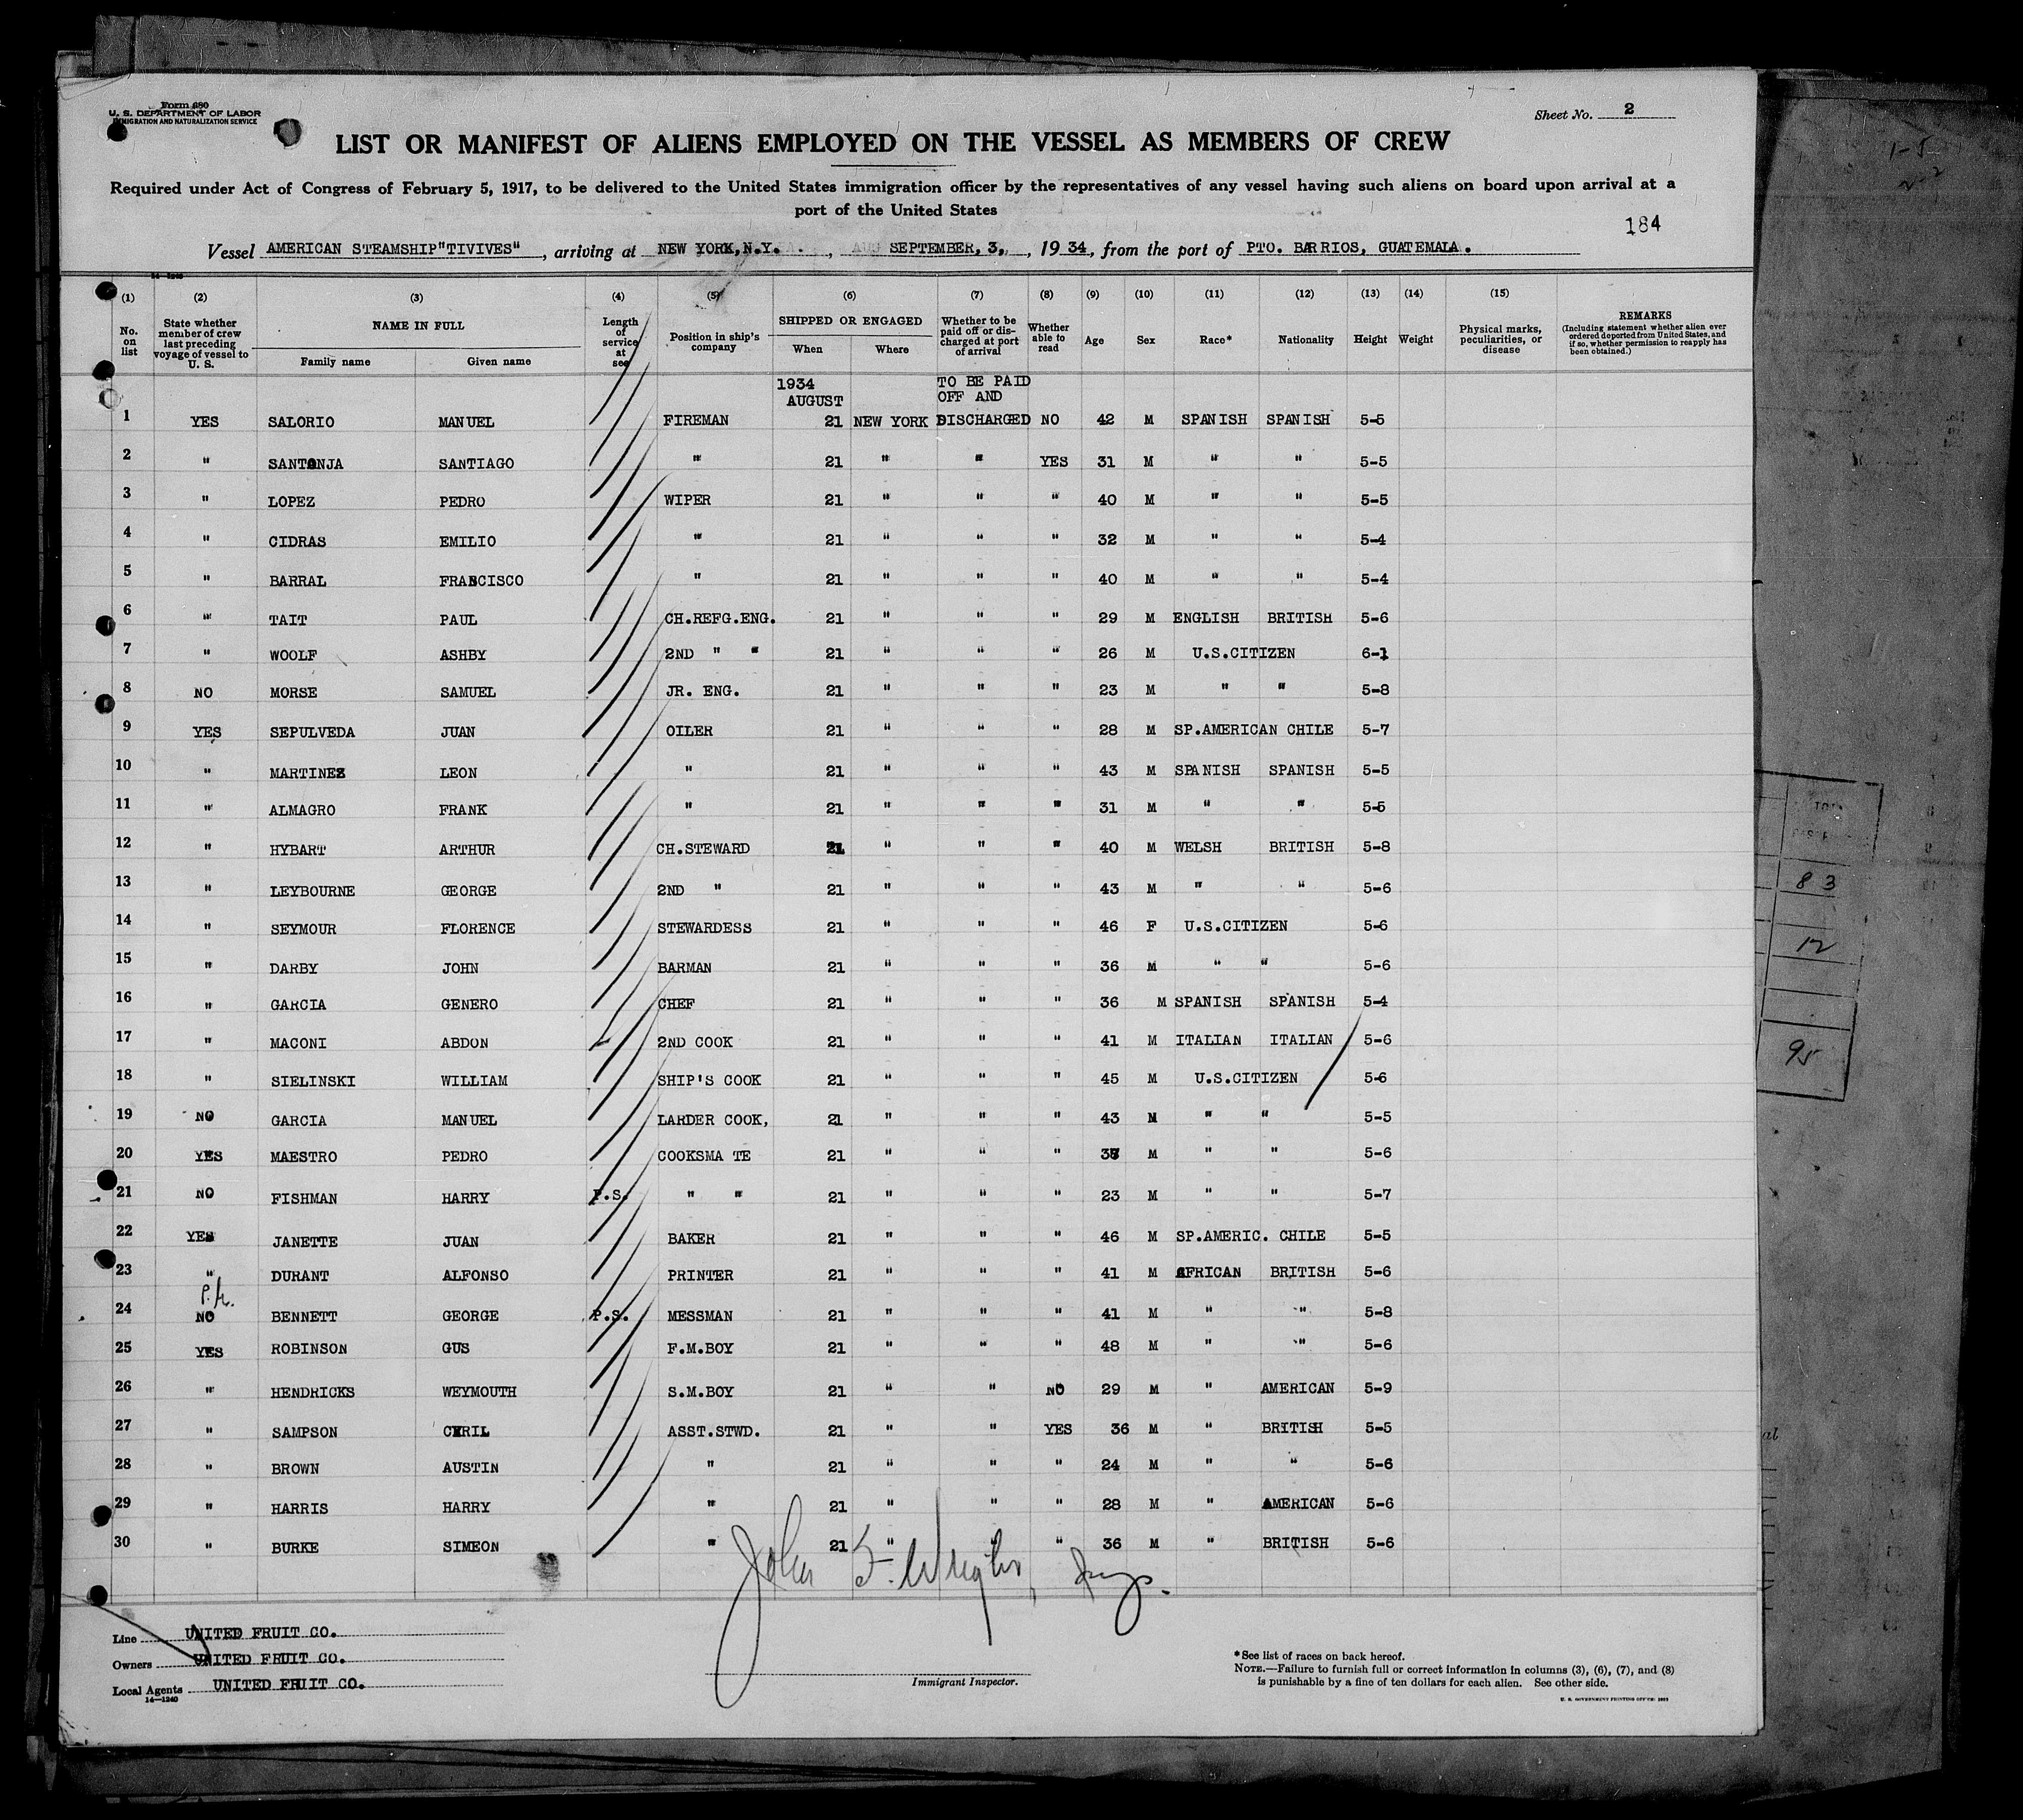 Form 680
U. S. DEPARTMENT OF LABOR
IMMIGRATION AND NATURALIZATION SERVICE
Sheet No. 2
LIST OR MANIFEST OF ALIENS EMPLOYED ON THE VESSEL AS MEMBERS OF CREW
Required under Act of Congress of February 5, 1917, to be delivered to the United States immigration officer by the representatives of any vessel having such aliens on board upon arrival at a
port of the United States
184
Vessel AMERICAN STEAMSHIP "TIVIVES", arriving at NEW YORK, N.Y., SEPTEMBER, 3, 1934, from the port of PTO. BARRIOS, GUATEMALA.
(1) (2) (3) (4) (5) (6) (7) (8) (9) (10) (11) (12) (13) (14) (15)
No. on list | State whether member of crew last preceding voyage of vessel to U. S. | NAME IN FULL | Length of service at sea | Position in ship's company | SHIPPED OR ENGAGED | Whether to be paid off or discharged at port of arrival | Whether able to read | Age | Sex | Race* | Nationality | Height | Weight | Physical marks, peculiarities, or disease | REMARKS (Including statement whether alien ever ordered deported from United States, and if so, whether permission to reapply has been obtained.)
Family name | Given name | When | Where
1934 TO BE PAID
AUGUST OFF AND
1 YES SALORIO MANUEL FIREMAN 21 NEW YORK DISCHARGED NO 42 M SPANISH SPANISH 5-5
2 " SANTONJA SANTIAGO " 21 " " YES 31 M " " 5-5
3 " LOPEZ PEDRO WIPER 21 " " " 40 M " " 5-5
4 " CIDRAS EMILIO " 21 " " " 32 M " " 5-4
5 " BARRAL FRANCISCO " 21 " " " 40 M " " 5-4
6 " TAIT PAUL CH.REFG.ENG. 21 " " " 29 M ENGLISH BRITISH 5-6
7 " WOOLF ASHBY 2ND " " 21 " " " 26 M U.S.CITIZEN 6-1
8 NO MORSE SAMUEL JR. ENG. 21 " " " 23 M " " 5-8
9 YES SEPULVEDA JUAN OILER 21 " " " 28 M SP.AMERICAN CHILE 5-7
10 " MARTINEZ LEON " 21 " " " 43 M SPANISH SPANISH 5-5
11 " ALMAGRO FRANK " 21 " " " 31 M " " 5-5
12 " HYBART ARTHUR CH.STEWARD 21 " " " 40 M WELSH BRITISH 5-8
13 " LEYBOURNE GEORGE 2ND " 21 " " " 43 M " " 5-6
14 " SEYMOUR FLORENCE STEWARDESS 21 " " " 46 F U.S.CITIZEN 5-6
15 " DARBY JOHN BARMAN 21 " " " 36 M " " 5-6
16 " GARCIA GENERO CHEF 21 " " " 36 M SPANISH SPANISH 5-4
17 " MACONI ABDON 2ND COOK 21 " " " 41 M ITALIAN ITALIAN 5-6
18 " SIELINSKI WILLIAM SHIP'S COOK 21 " " " 45 M U.S.CITIZEN 5-6
19 NO GARCIA MANUEL LARDER COOK, 21 " " " 43 M " " 5-5
20 YES MAESTRO PEDRO COOKSMA TE 21 " " " 37 M " " 5-6
21 NO FISHMAN HARRY P.S. " " 21 " " " 23 M " " 5-7
22 YES JANETTE JUAN BAKER 21 " " " 46 M SP.AMERIC. CHILE 5-5
23 " DURANT ALFONSO PRINTER 21 " " " 41 M AFRICAN BRITISH 5-6
24 NO BENNETT GEORGE P.S. MESSMAN 21 " " " 41 M " " 5-8
25 YES ROBINSON GUS F.M.BOY 21 " " " 48 M " " 5-6
26 " HENDRICKS WEYMOUTH S.M.BOY 21 " " NO 29 M " AMERICAN 5-9
27 " SAMPSON CYRIL ASST.STWD. 21 " " YES 36 M " BRITISH 5-5
28 " BROWN AUSTIN " 21 " " " 24 M " " 5-6
29 " HARRIS HARRY " 21 " " " 28 M " AMERICAN 5-6
30 " BURKE SIMEON " 21 " " " 36 M " BRITISH 5-6
John F. Wright, Insp.
Line UNITED FRUIT CO.
Owners UNITED FRUIT CO.
Local Agents UNITED FRUIT CO.
14—1240
Immigrant Inspector.
*See list of races on back hereof.
NOTE.—Failure to furnish full or correct information in columns (3), (6), (7), and (8)
is punishable by a fine of ten dollars for each alien. See other side.
83
12
95